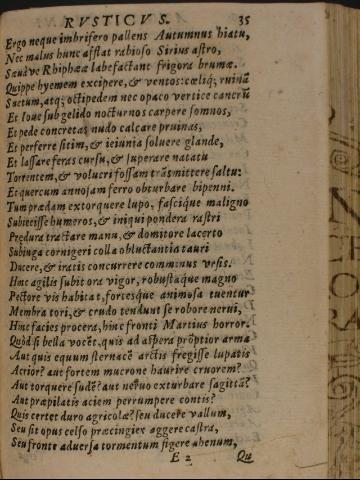 RVSTICVS. 35
Ergo neque imbrifero pallens Autumnus hiatu,
Nec malus hunc afflat rabioso Sirius astro,
Sæuáve Rhiphææ labefactant frigora brumæ.
Quippe hyemem excipere, & ventos: cœliq; ruinā
Suetum, atq; octipedem nec opaco vertice cancrū
Et Ioue sub gelido nocturnos carpere somnos,
Et pede concretas nudo calcare pruinas,
Et perferre sitim, & ieiunia soluere glande,
Et lassare feras cursu, & superare natatu
Torrentem, & volucri fossam trāsmittere saltu:
Et quercum annosam ferro obturbare bipenni.
Tum prædam extorquere lupo, fascique maligno
Subiecisse humeros, & iniqui pondera rastri
Prędura tractare manu, & domitore lacerto
Subiuga cornigeri colla obluctantia tauri
Ducere, & iratis concurrere comminus vrsis.
Hinc agilis subit ora vigor, robustáque magno
Pectore vis habitat, fortesque animosa tuentur
Membra tori, & crudo tendunt se robore nerui,
Hinc facies procera, hinc fronti Martius horror.
Quòd si bella vocēt, quis ad aspera prōptior arma
Aut quis equum sternacē arctis fregisse lupatis
Acrior? aut fortem mucrone haurire cruorem?
Aut torquere sudē? aut neruo exturbare sagittā?
Aut præpilatis aciem perrumpere contis?
Quis certet duro agricolæ? seu ducere vallum,
Seu sit opus celso præcingier aggere castra,
Seu fronte aduersa tormentum figere ahenum,
E 2 Qu